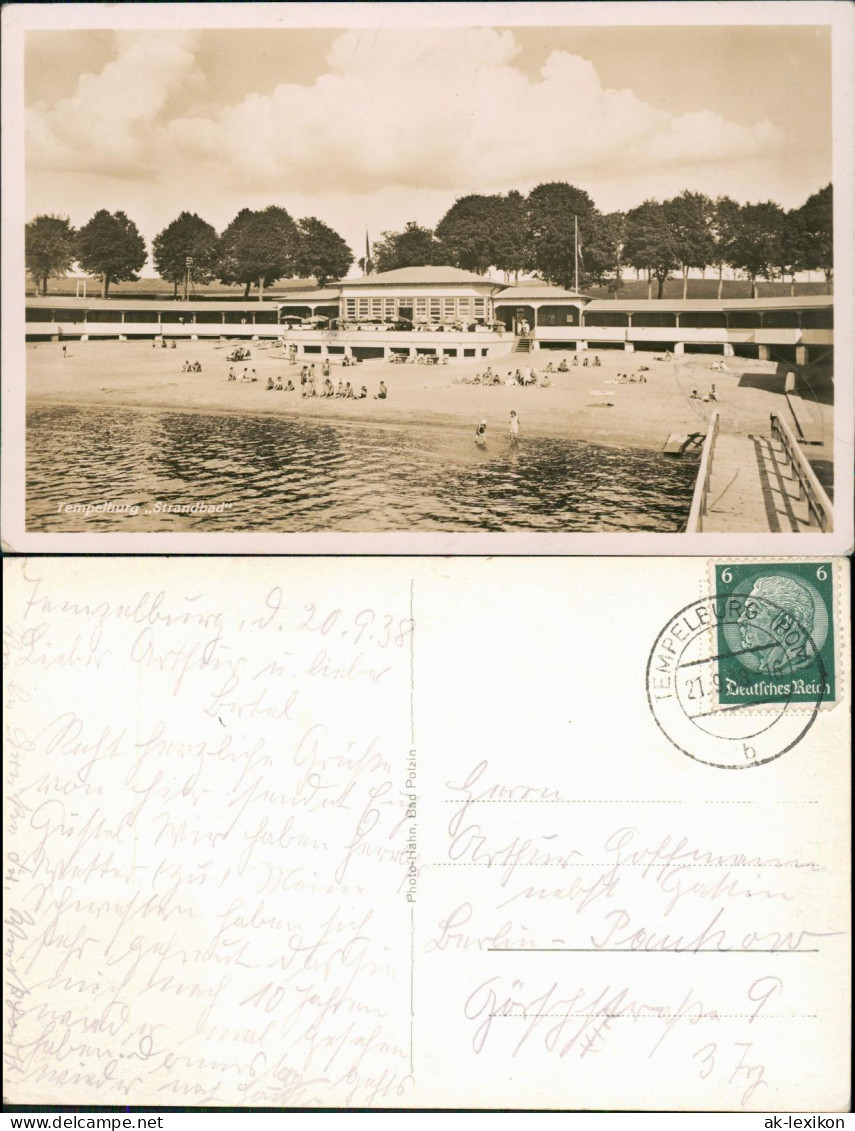 Tempelburg „Strandbad"
Tempelburg, d. 20.9.38
Lieber Arthur u. liebe
Bertel
Recht herzliche Grüße
von hier sendet Euch
Gustel. Wir haben herrl.
Wetter (zu) Meine
Schwestern haben sich
sehr gefreut das sie
mich nach 10 Jahren
wieder mal gesehen
haben. Donnerstag gehts
wieder nach
Photo-Hahn, Bad Polzin
6 6
Deutsches Reich
TEMPELBURG (POM)
21.9.
b
Herrn
Arthur Hoffmann
nebst Gattin
Berlin - Pankow
Görschstraße 9
3 Trg
ak-ansichtskarten.de